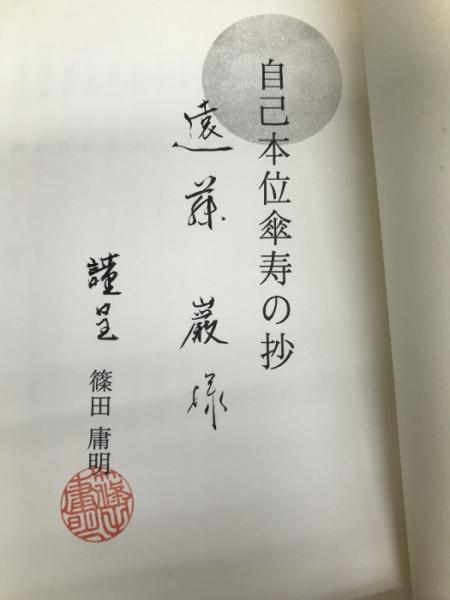 自己本位傘寿の抄
遠藤 巖様
謹呈 篠田 庸明